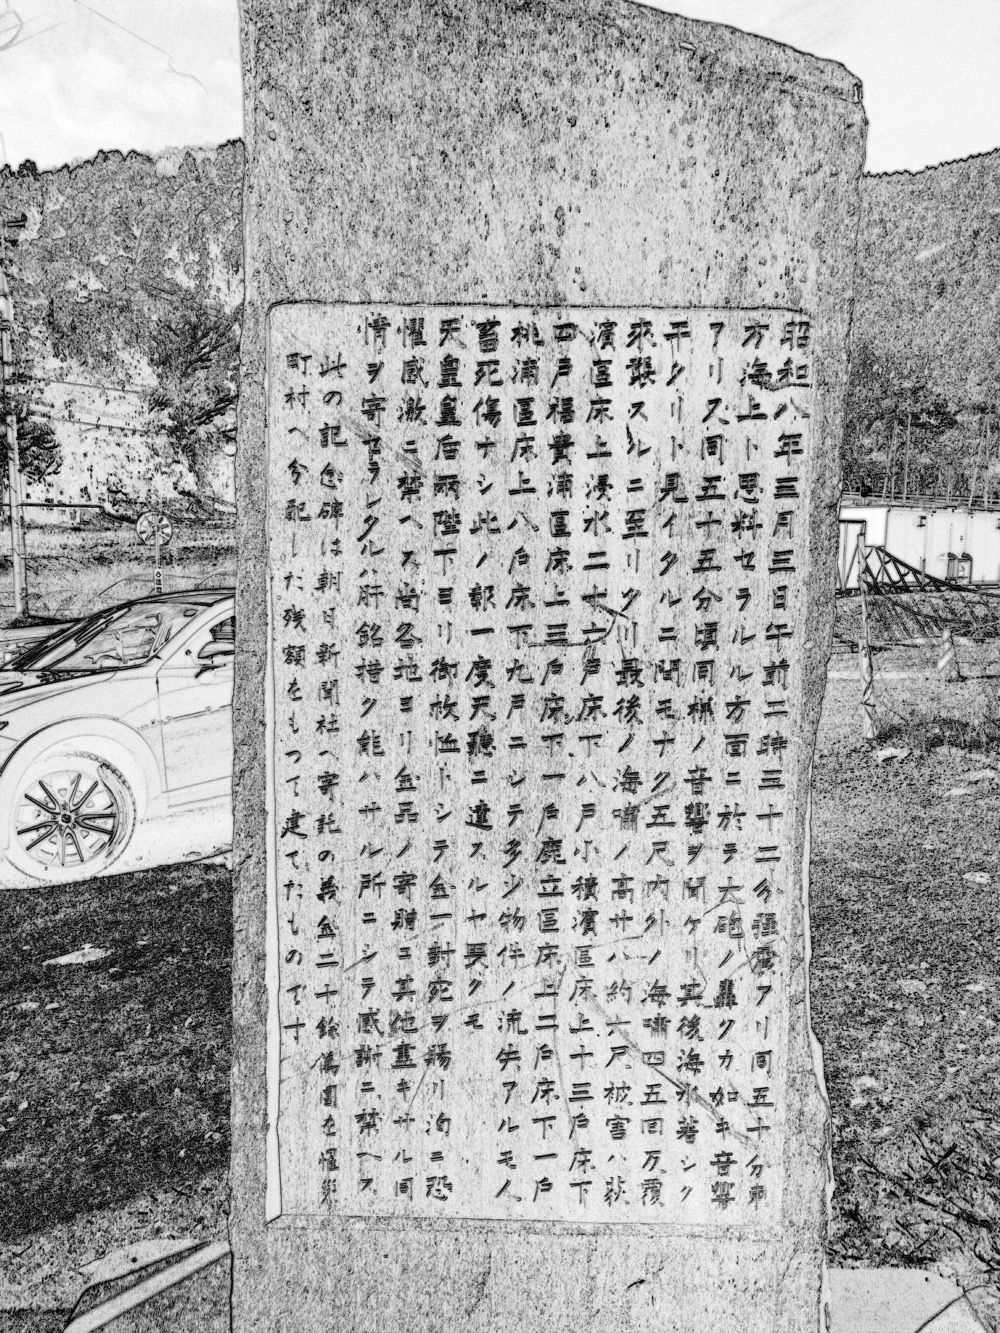 昭和八年三月三日午前二時三十二分強震アリ同五十分東
方海上ト思料セラルル方面ニ於テ大砲ノ轟クカ如キ音響
アリ又同五十五分頃同様ノ音響ヲ聞ケリ其後海水著シク
干タリト見イタルニ間モナク五尺内外ノ海嘯四五回反覆
來襲スルニ至リタリ最後ノ海嘯ノ高サハ約六尺被害ハ荻
濱區床上浸水二十六戸床下八戸小積濱區床上十三戸床下
四戸福貴浦區床上三戸床下一戸鹿立區床上二戸床下一戸
桃浦區床上八戸床下九戸ニシテ多少物件ノ流失アルモ人
畜死傷ナシ此ノ報一度天聽ニ達スルヤ畏クモ
天皇皇后兩陛下ヨリ御救恤トシテ金一封宛ヲ賜リ洵ニ恐
懼感激ニ禁ヘス尚各地ヨリ金品ノ寄贈ヱ其他盡キサル同
情ヲ寄セラレタルハ肝銘措ク能ハサル所ニシテ感謝ニ禁ヘス
此の記念碑は朝日新聞社へ寄託の義金二十餘萬圓を罹災
町村へ分配した残額をもつて建てたものです